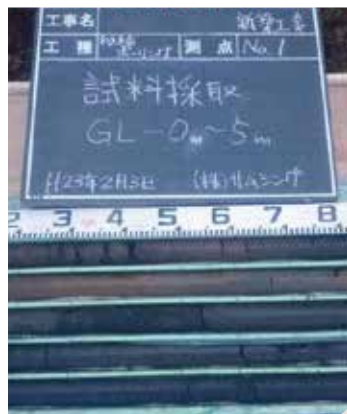 工事名 新築工事
工種 ボーリング 測点 No.1
試料採取
GL-0m~5m
H23年2月3日 (株)サムシング
2 3 4 5 6 7 8